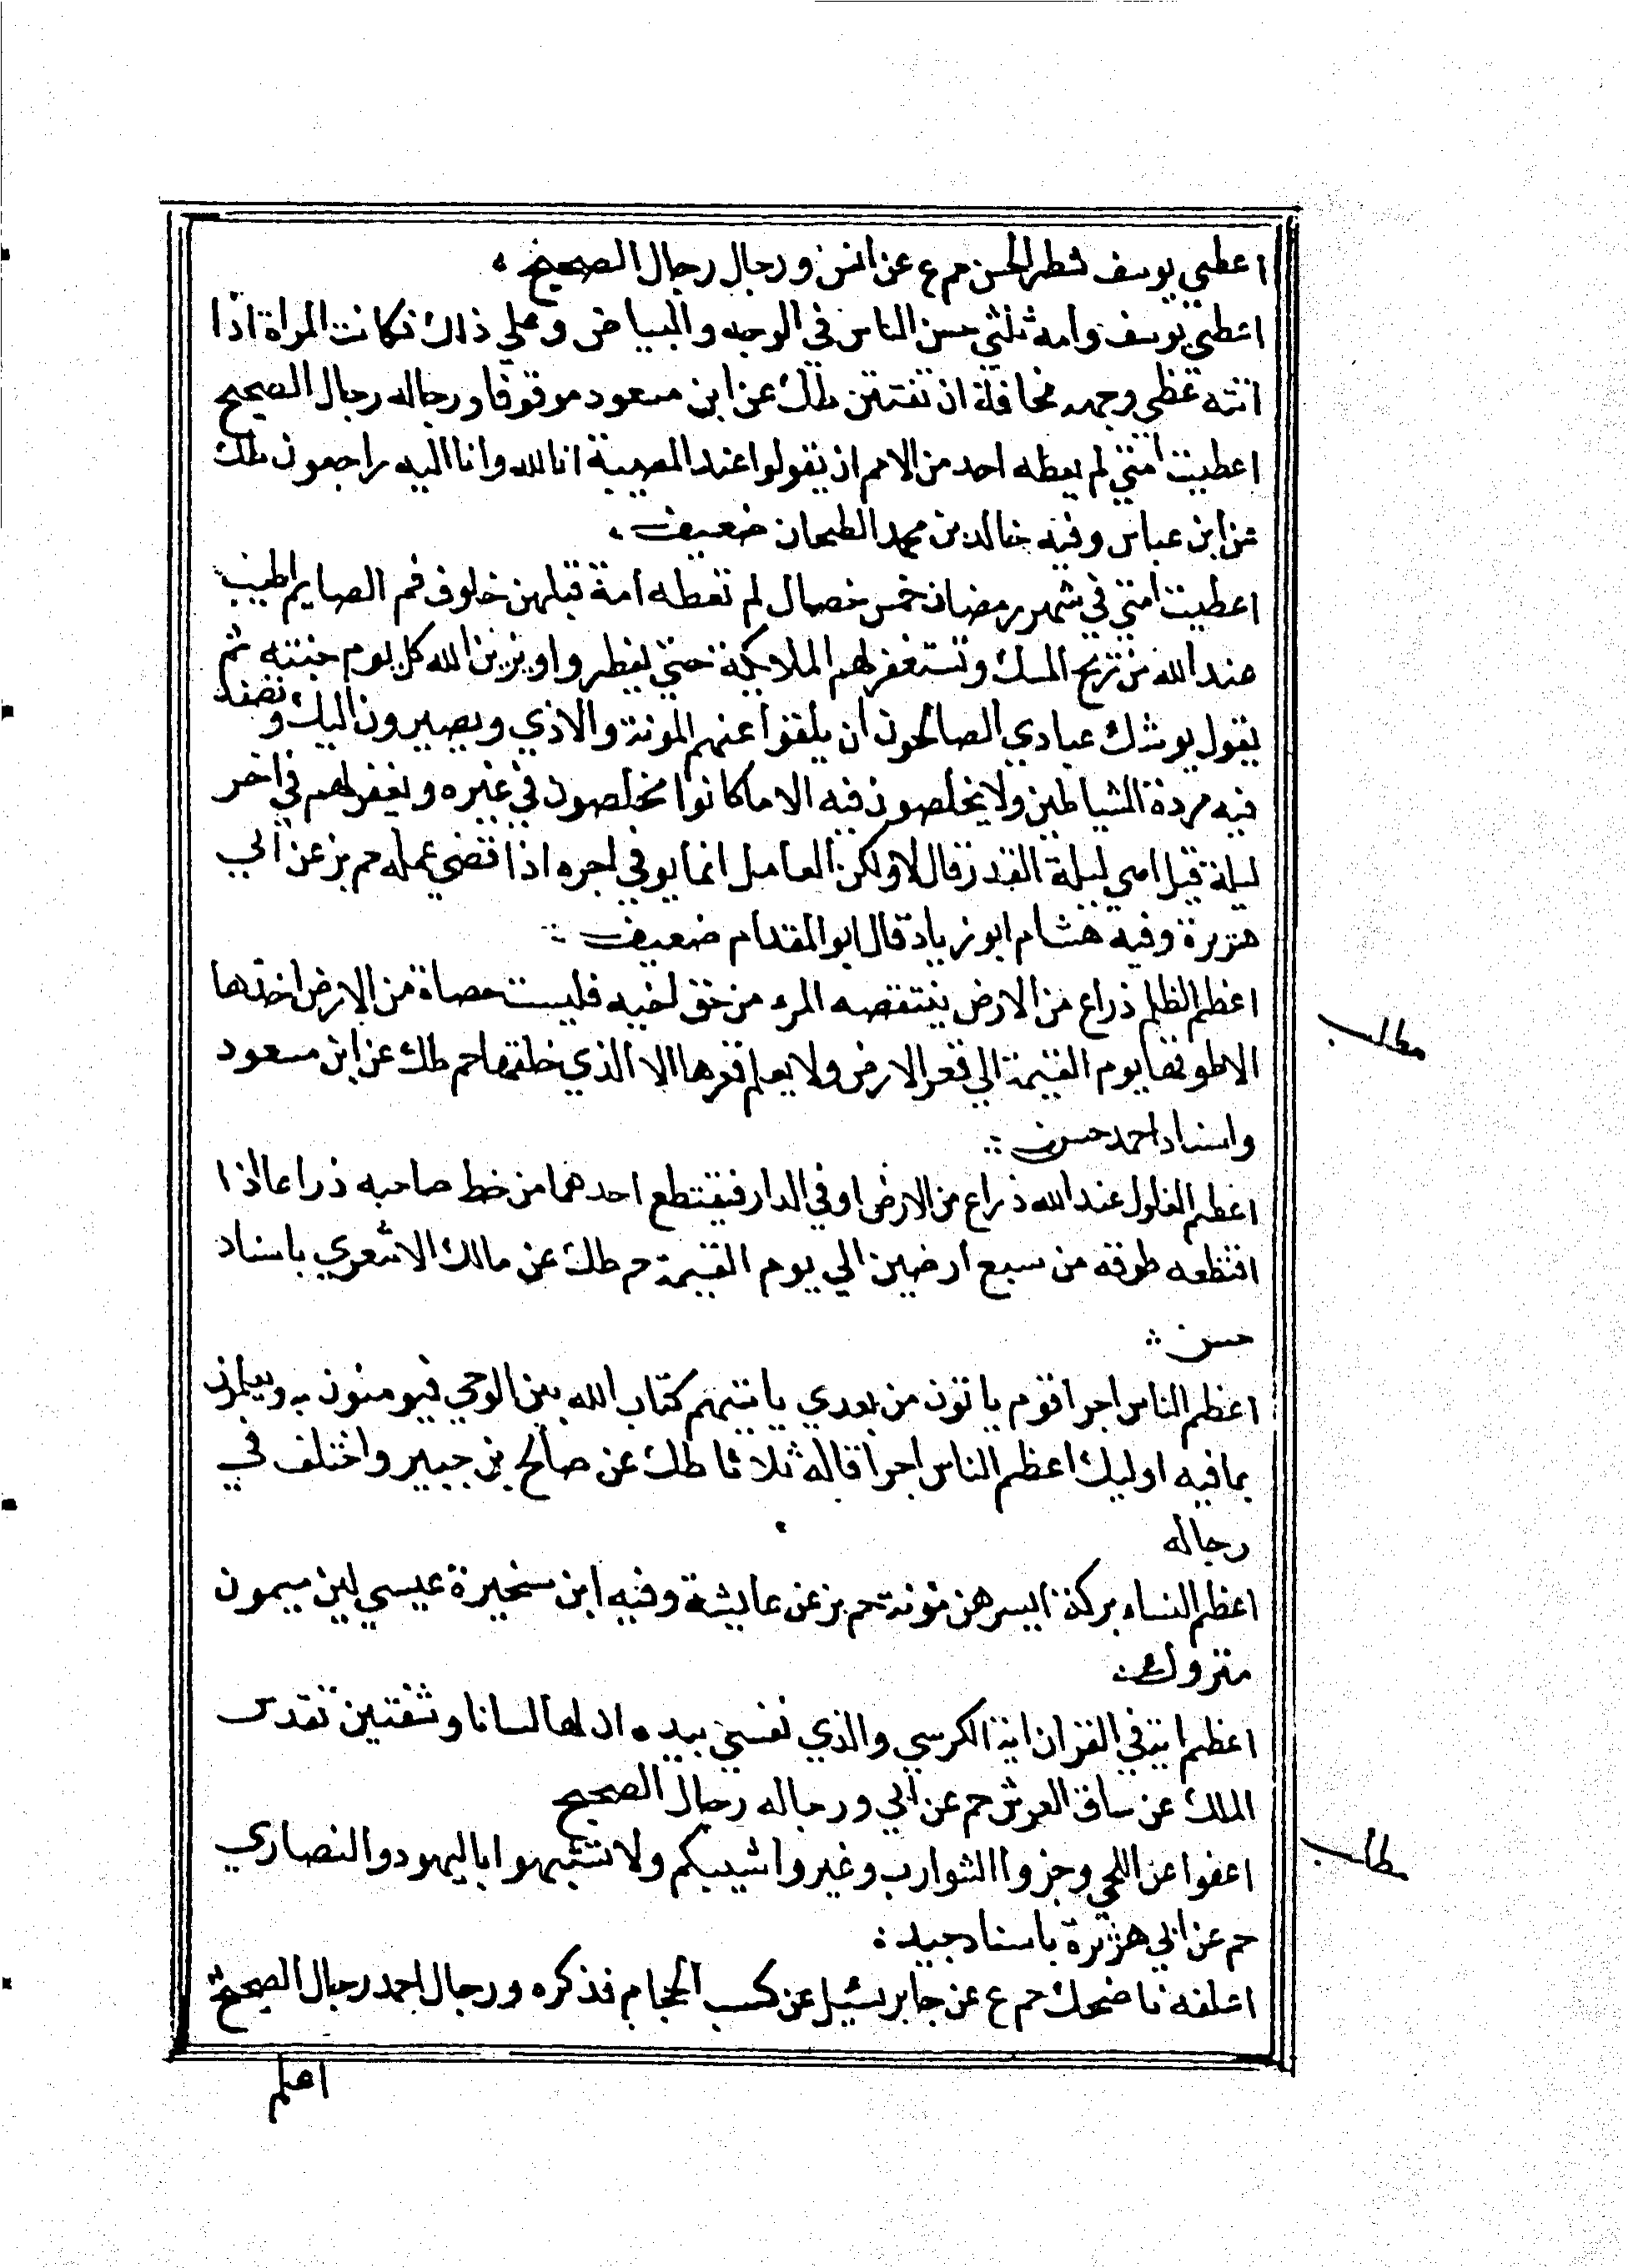 اعطي يوسف شطر الحسن حم ع عن انس ورجال رجال الصحيح
اعطي يوسف وامه ثلثي حسن الناس في الوجه والبياض وعلي ذلك فكانت المراة اذا
اتته غطي وجهه مخافة ان تفتتن طك عن ابن مسعود موقوفا ورجاله رجال الصحيح
اعطيت امتي لم يعطه احد من الامم ان يقولوا عند المصيبة انا لله وانا اليه راجعون طك
عن ابن عباس وفيه خالد بن محمد الطحان ضعيف
اعطيت امتي في شهر رمضان خمس خصال لم تعطه امة قبلهن خلوف فم الصايم اطيب
عند الله من ريح المسك وتستغفر لهم الملايكة حتي يفطروا ويزين الله كل يوم جنته ثم
يقول يوشك عبادي الصالحون ان يلقوا عنهم المونة والاذي ويصيرون اليك وتصفد
فيه مردة الشياطين ولا يخلصون فيه الا ما كانوا يخلصون في غيره ويغفر لهم في اخر
ليلة قيل اهي ليلة القدر قال لا ولكن العامل انما يوفي اجره اذا قضي عمله حم بز عن ابي
هريرة وفيه هشام ابو زياد قال ابو المقدام ضعيف
اعظم الظلم ذراع من الارض ينتقصه المرء من حق اخيه فليست حصاة من الارض اخذها
الا طوقها يوم القيمة الي قعر الارض ولا يعلم قعرها الا الذي خلقها حم طك عن ابن مسعود
واسناد احمد حسن
اعظم الغلول عند الله ذراع من الارض او في الدار فيقتطع احدهما من خط صاحبه ذراعا اذا
اقتطعه طوقه من سبع ارضين الي يوم القيمة حم طك عن مالك الاشعري باسناد
حسن
اعظم الناس اجرا قوم ياتون من بعدي ياتيهم كتاب الله بين الوحي فيومنون به ويعملون
بما فيه اوليك اعظم الناس اجرا قاله ثلاثا طك عن صالح بن جبير واختلف في
رجاله
اعظم النساء بركة ايسرهن مؤنة حم بز عن عايشة وفيه ابن سخبرة عيسي لين ميمون
متروك
اعظم اية في القران اية الكرسي والذي نفسي بيده ان لها لسانا وشفتين تقدس
الملك عن ساق العرش حم عن ابي ورجاله رجال الصحيح
اعفوا عن اللحي وجزوا الشوارب وغيروا شيبكم ولا تشبهوا باليهود والنصاري
حم عن ابي هريرة باسناد جيد
اعلفه ناضحك حم ع عن جابر سئيل عن كسب الحجام فذكره ورجال احمد رجال الصحيح
اعلم
مطلب
مطلب